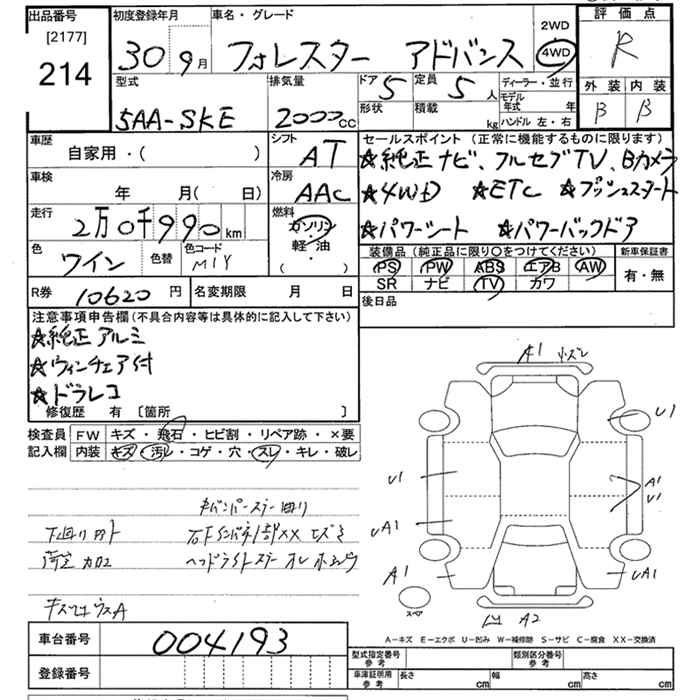 出品番号 初度登録年月 車名・グレード 2WD 評価点
[2177] 30 9月 フォレスター アドバンス 4WD R
214 型式 排気量 ドア 5 定員 5人 ディーラー・並行 外装 内装
5AA-SKE 2000cc 形状 積載 kg モデル年式 年 B B
ハンドル 左・右
車歴 シフト セールスポイント(正常に機能するものに限ります)
自家用・( ) AT ★純正ナビ、フルセグTV、Bカメラ
車検 冷房 ★4WD ★ETC ★プッシュスタート
年 月(日) AAC
走行 燃料 ★パワーシート ★パワーバックドア
2万0千990km ガソリン
軽・油
( )
色 色替 色コード 装備品(純正品に限り〇をつけてください) 新車保証書
ワイン M1Y PS PW ABS エアB AW 有・無
SR ナビ TV カワ
R券 10620円 名変期限 月 日 後日品
注意事項申告欄(不具合内容等は具体的に記入して下さい)
★純正アルミ
★ウィンチェア付
★ドラレコ
修復歴 有 [箇所 ]
検査員 FW キズ・飛石・ヒビ割・リペア跡・×要
記入欄 内装 キズ・汚レ・コゲ・穴・スレ・キレ・破レ
A1
U1
U1
A1
U1
UA1
A1
UA1
スペア
A2
A-キズ E-エクボ U-凹み W-補修跡 S-サビ C-腐食 XX-交換済
車台番号 004193
型式指定番号 参考 類別区分番号 参考
登録番号
車庫証明用 参考 長さ cm 幅 cm 高さ cm